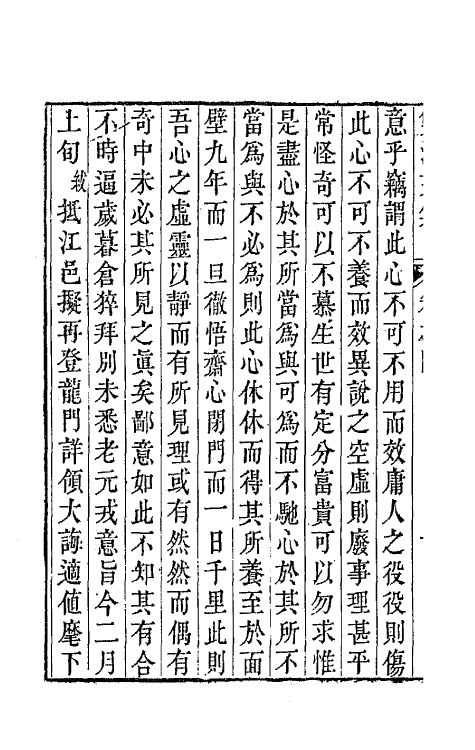 意乎竊謂此心不可不用而效庸人之役役則傷
此心不可不養而效異說之空虛則廢事理甚平
常怪奇可以不慕生世有定分富貴可以勿求惟
是盡心於其所當爲與可爲而不馳心於其所不
當爲與不必爲則此心休休而得其所養至於面
壁九年而一旦徹悟齋心閉門而一日千里此則
吾心之虛靈以靜而有所見理或有然然而偶有
奇中未必其所見之眞矣鄙意如此不知其有合
不時逼歲暮倉猝拜別未悉老元戎意旨今二月
上旬紱抵江邑擬再登龍門詳領大誨適値麾下